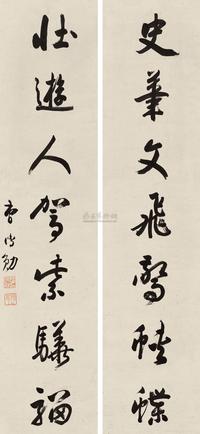 史筆文飛驚蛺蝶
壯遊人駕紫驊騮
曹鴻勛